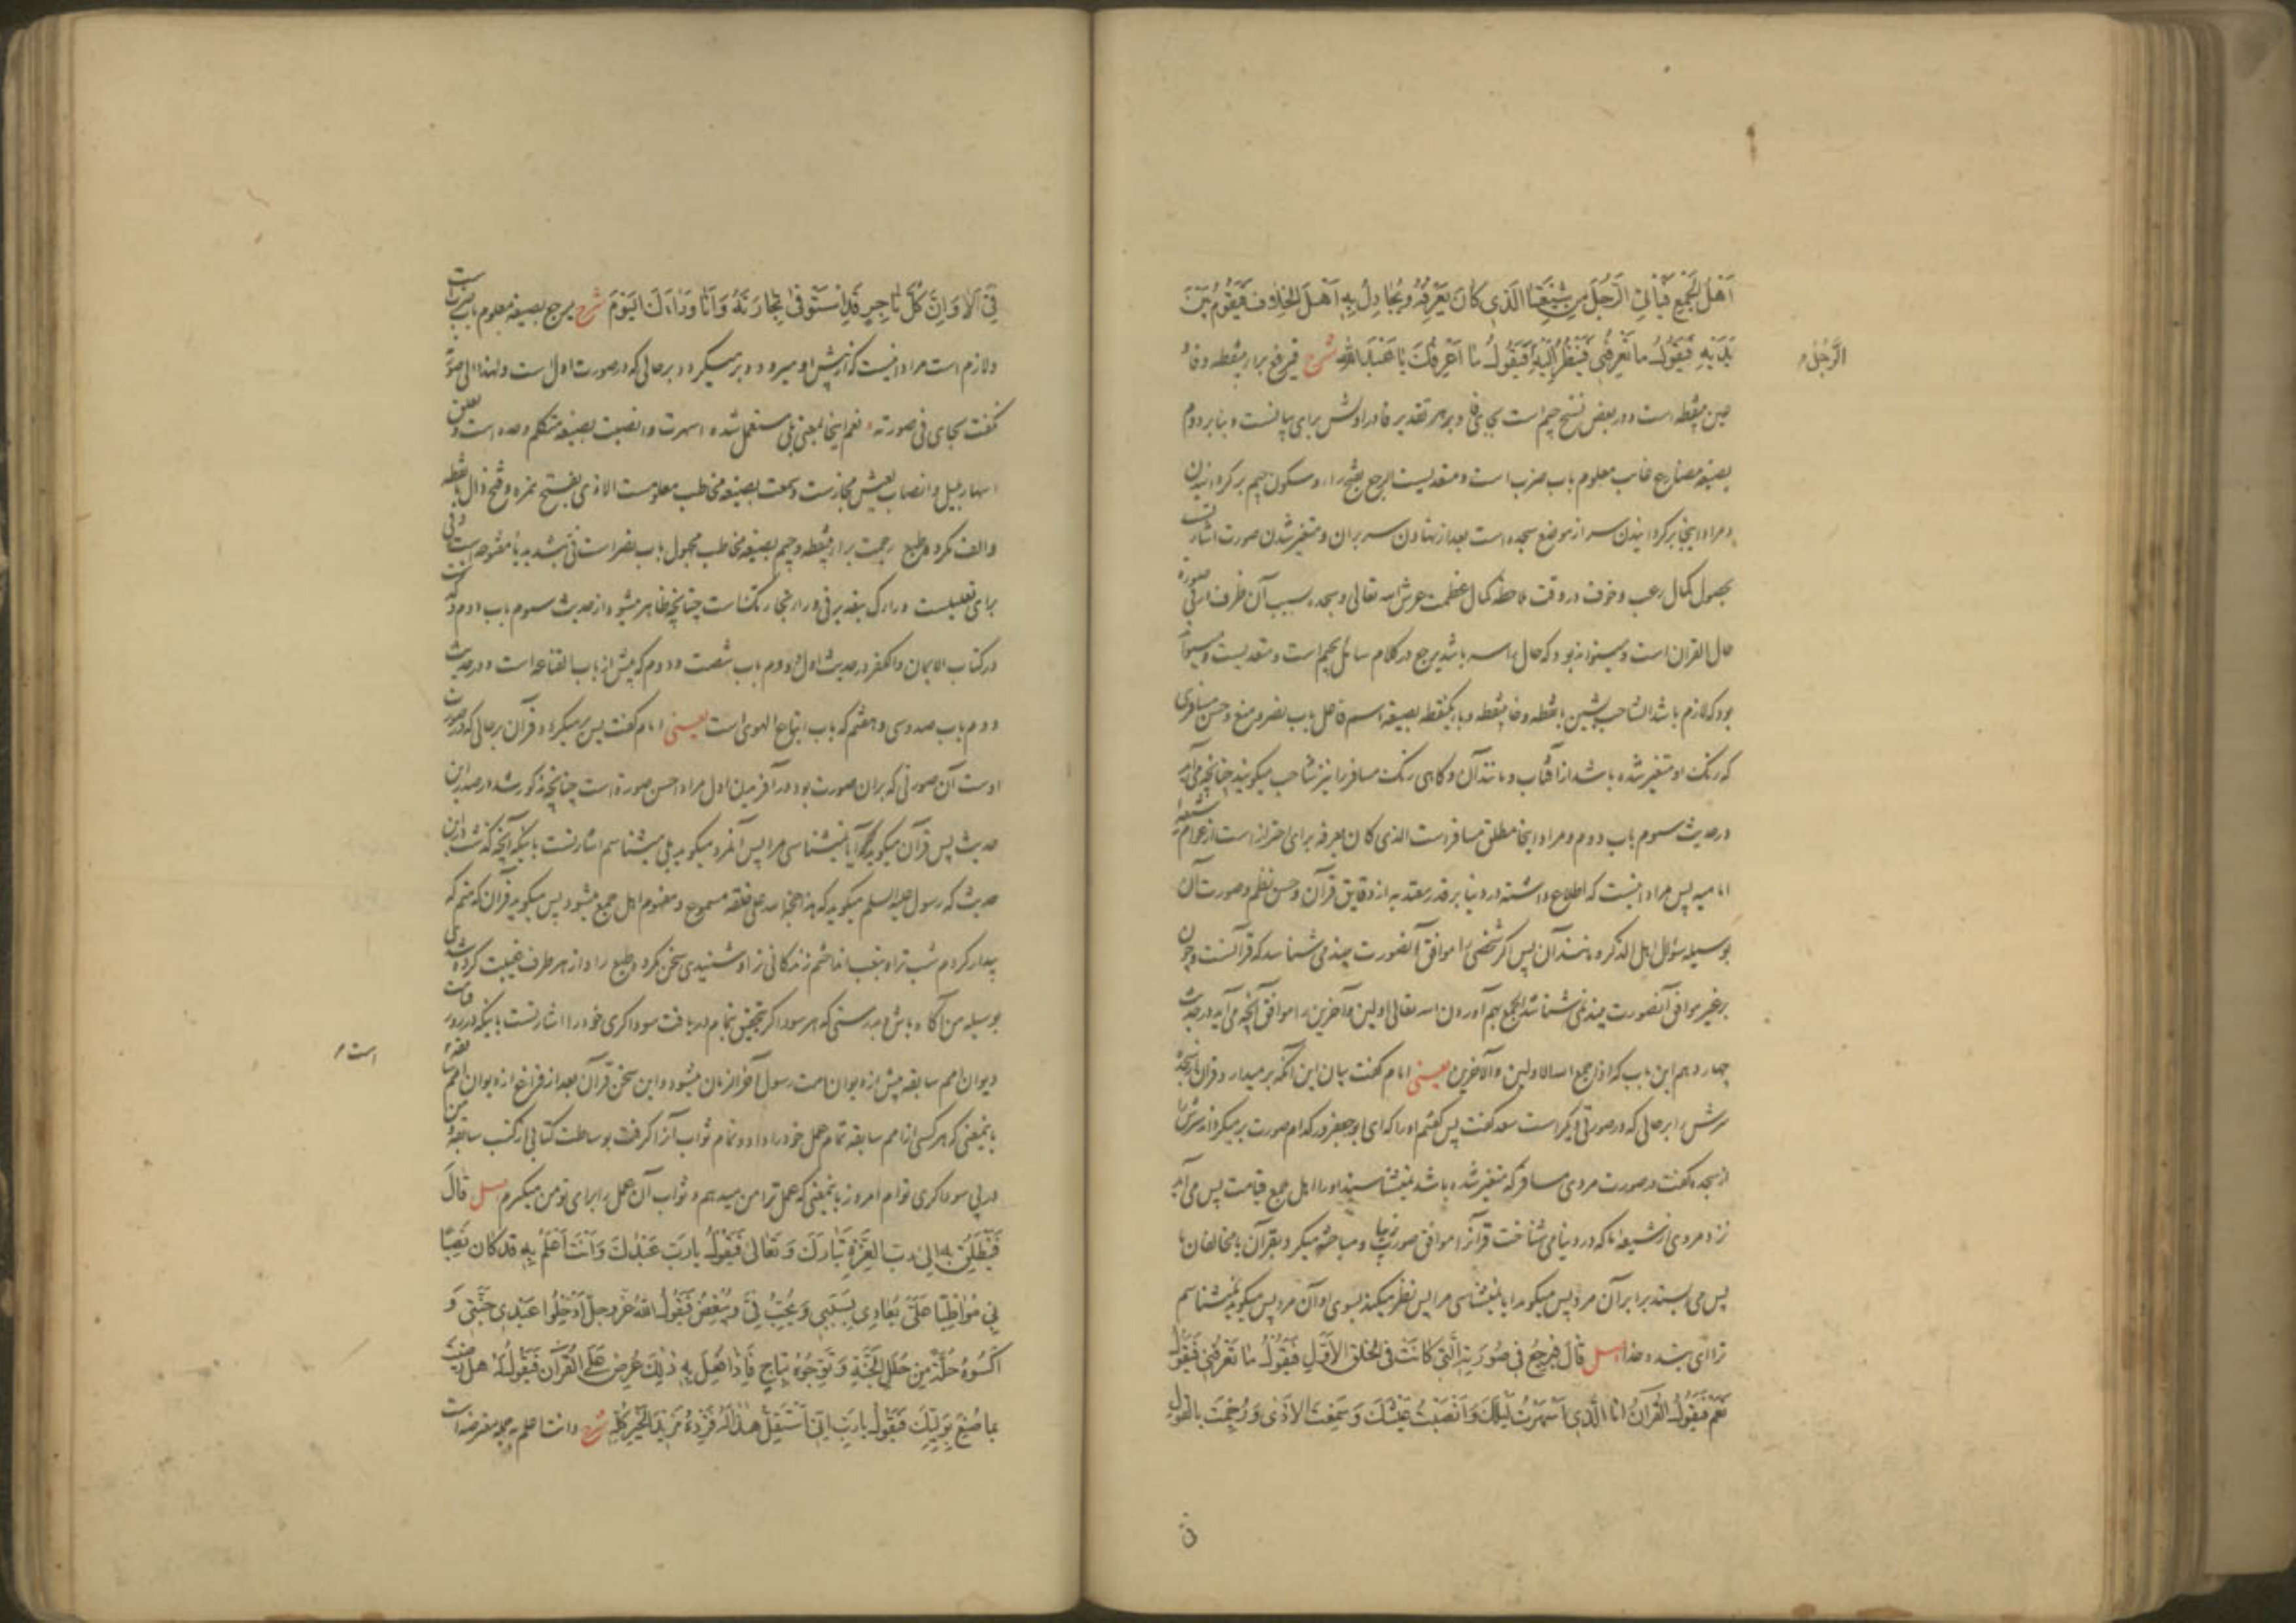 اَهْلُ الْجَمْعِ فَيَأْتِي الرَّجُلَ مِنْ شِيعَتِنَا الَّذِي كَانَ يَعْرِفُهُ وَيُجَادِلُ بِهِ اَهْلَ الْخِلَافِ فَيَقُومُ بَيْنَ
يَدَيْهِ فَيَقُولُ مَا تَعْرِفُنِي فَيَنْظُرُ اِلَيْهِ فَيَقُولُ مَا اَعْرِفُكَ يَا عَبْدَ اللهِ شرح
الرَّجُلُ
عين بنقطه است ودر بعض نسخ جيم است بجاى فا وبر هر تقدير فا در اولش براى بيانست وبنا بر دوم
بصيغه مضارع غايب معلوم باب ضرب است ومتعديست الرجع بفتح را وسكون جيم برگردانيدن
ومراد اينجا برگردانيدن سر از موضع سجده است بعد از نهادن سر بران ومتغير شدن صورت اشارت
بحصول كمال رعب وخوف در وقت ملاحظه كمال عظمت عرش الله تعالى وسجده بسبب آن ظرف
حال القران است وميتواند بود كه حال راسه باشد يرجع در كلام سائل بجيم است ومتعديست
بود كه لازم باشد الشاحب بشين بانقطه وحا بنقطه وبا يكنقطه بصيغه اسم فاعل باب نصر ومنع وحسن مسافرى
كه رنگ او متغير شده باشد از آفتاب ومانند آن وگاهى رنگ مسافر را نيز شاحب ميگويند چنانچه مى آيد
در حديث سوم باب دوم ومراد اينجا مطلق مسافر است الذى كان يعرفه براى احتراز است از عوام شيعه
اماميه پس مراد اينست كه اطلاع داشته در دنيا بر قدر معتد به از دقايق قرآن وحسن نظم وصورت آن
بوسيله سؤال اهل الذكر ومانند آن پس اگر شخصى را موافق آنصورت بيند مى شناسد كه قرآنست وچون
بر غير موافق آنصورت بيند نمى شناسد الجمع بهم آوردن الله تعالى اولين وآخرين را موافق آنچه مى آيد در حديث
چهاردهم اين باب كه اذا جمع الله الاولين والآخرين يعنى امام گفت بيان اين آنكه برميدارد قرآن
سرش را بر حالى كه در صورتى ديگر است سعد گفت پس گفتم او را كه اى ابو جعفر در كدام صورت بر ميگرداند سرش را
از سجده گفت در صورت مردى مسافر كه متغير شده باشد نميشناسند او را اهل جمع قيامت پس مى آيد
نزد مردى از شيعه ما كه در دنيا مى شناخت قرآن را موافق صورت زيبا ومباحثه ميكرد بقرآن با مخالفان ما
پس مى ايستد برابر آن مرد پس ميگويد آيا نميشناسى مرا پس نظر ميكند بسوى او آن مرد پس ميگويد نميشناسم
ترا اى بنده خدا اصل قَالَ فَيَرْجِعُ فِي صُورَتِهِ الَّتِي كَانَتْ فِي الْخَلْقِ الْاَوَّلِ فَيَقُولُ مَا تَعْرِفُنِي فَيَقُولُ
نَعَمْ فَيَقُولُ الْقُرْآنُ اَنَا الَّذِي اَسْهَرْتُ لَيْلَكَ وَاَنْصَبْتُ عَيْشَكَ وَسَمِعْتَ الْاَذَى وَرُجِمْتَ بِالْقَوْلِ
فِيَّ اَلَا وَاِنَّ كُلَّ تَاجِرٍ قَدِ اسْتَوْفَى تِجَارَتَهُ وَاَنَا وَرَاءَكَ الْيَوْمَ شرح يرجع بصيغه معلوم باب ضرب است
ولازم است مراد اينست كه از پيش او ميرود وبر ميگردد بر حالى كه در صورت اول است ولهذا الى صورته
نگفت بجاى فى صورته نعم اينجا بمعنى بلى مستعمل شده اسهرت وانصبت بصيغه متكلم وحده است
اسهار ليل وانصاب عيش مجازست وسمعت بصيغه مخاطب معلومست الاذى بفتح همزه وفتح ذال بانقطه
والف مكروه طبع رجمت برا بنقطه وجيم بصيغه مخاطب مجهول باب نصر است فىّ بتشديد يا مفتوحه است
براى تعليلست وراءك بتقدير فى وراء تجارتك است چنانچه ظاهر ميشود از حديث سوم باب دوم
در كتاب الايمان والكفر در حديث اول ودوم باب شصت ودوم كه پيش از باب القناعه است ودر حديث
دوم باب صد وسى وهفتم كه باب اتباع الهوى است يعنى امام گفت پس بر ميگردد قرآن بر حالى كه در صورت
اوست آن صورتى كه بران صورت بود در آفريدن اول مراد احسن صورة است چنانچه مذكور شد در صدر اين
حديث پس قرآن ميگويد كه آيا نميشناسى مرا پس آنمرد ميگويد بلى ميشناسم اشارتست باينكه آنچه گذشت در اين
حديث كه رسول عليه السلام ميگويد كه هذا حجة الله على خلقه مسموع ومفهوم اهل جمع ميشود پس ميگويد قرآن كه منم كه
بيدار كردم شب ترا وبتعب انداختم زندگانى ترا وشنيدى سخن مكروه طبع را واز هر طرف غيبت كرده شدى
بوسيله من آگاه باش وبدرستى كه هر سوداگر بتحقيق بتمام دريافت سوداگرى خود را اشارتست باينكه در روز قيامت
ديوان امم سابقه پيش از ديوان امت رسول آخر الزمان ميشود واين سخن قرآن بعد از فراغ از ديوان امم سابقه
است
باينمعنى كه هر كسى از امم سابقه تمام عمل خود را داد وتمام ثواب آنرا گرفت بوساطت كتابى از كتب سابقه
در پى سوداگرى توام امروز باينمعنى كه عمل ترا من ميدهم وثواب آن عمل را براى تو من ميگيرم اصل قَالَ
فَيَنْطَلِقُ بِهِ اِلَى رَبِّ الْعِزَّةِ تَبَارَكَ وَتَعَالَى فَيَقُولُ يَا رَبِّ عَبْدُكَ وَاَنْتَ اَعْلَمُ بِهِ قَدْ كَانَ نَصِبًا
بِي مُوَاظِبًا عَلَيَّ يُعَادِي بِسَبَبِي وَيُحِبُّ فِيَّ وَيُبْغِضُ فَيَقُولُ اللهُ عَزَّ وَجَلَّ اَدْخِلُوا عَبْدِي جَنَّتِي وَ
اكْسُوهُ حُلَّةً مِنْ حُلَلِ الْجَنَّةِ وَتَوِّجُوهُ بِتَاجٍ فَاِذَا فُعِلَ بِهِ ذٰلِكَ عُرِضَ عَلَى الْقُرْآنِ فَيُقَالُ لَهُ هَلْ رَضِيتَ
بِمَا صُنِعَ بِوَلِيِّكَ فَيَقُولُ يَا رَبِّ اِنِّي اَسْتَقِلُّ هٰذَا لَهُ فَزِدْهُ مَزِيدَ الْخَيْرِ كُلِّهِ شرح وانت اعلم به جمله معترضه است